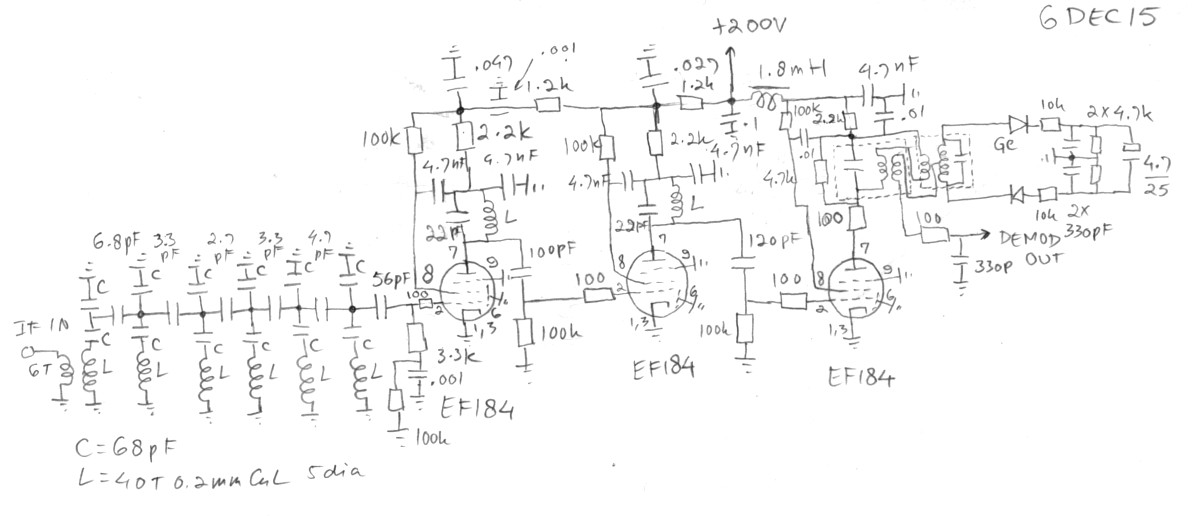 6 DEC 15
+200V
.047
.001
1.2k
.027
1.2k
1.8mH
4.7nF
.1
100k
2.2k
100k
2.2k
100k
2.2k
.01
4.7nF
4.7nF
4.7nF
4.7nF
.01
4.7k
Ge
10k
2x4.7k
.1
4.7
25
10k
2x
330pF
L
L
22pF
22pF
100
100
DEMOD
OUT
330p
6.8pF
3.3
pF
2.7
pF
3.3
pF
4.7
pF
56pF
100pF
120pF
C
C
C
C
C
C
7
8
9
100
2
6
1,3
7
8
9
100
2
6
1,3
7
8
9
100
2
6
1,3
IF IN
6T
C
C
C
C
C
C
L
L
L
L
L
L
3.3k
.001
100k
100k
100k
EF184
EF184
EF184
C=68pF
L=40T 0.2mm CuL 5dia